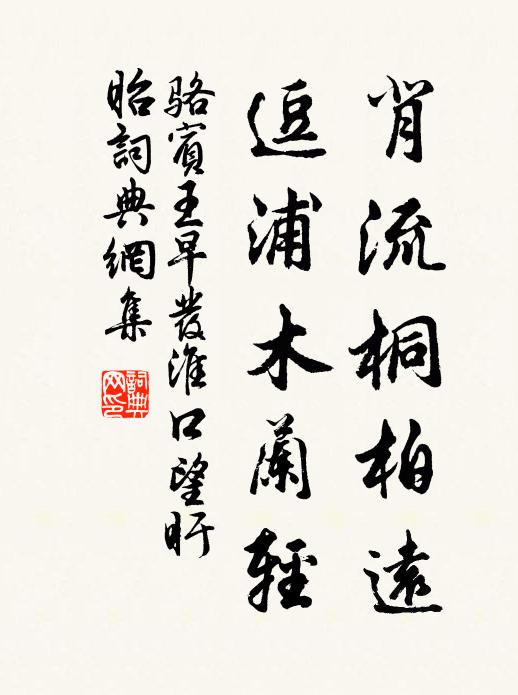 肖流桐柏遠
逗浦木蘭輕
駱賓王早發淮口望盱
眙詞典網集
詞典
网印